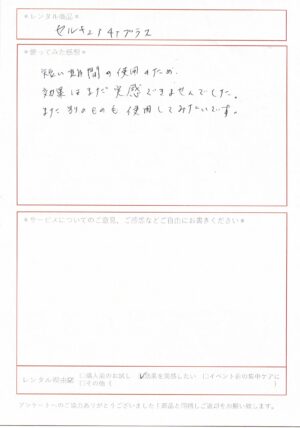 ＊レンタル商品＊
セルキュア4Tプラス
＊使ってみた感想＊
短い期間の使用のため、
効果はまだ実感できませんでした。
また別のものも使用してみたいです。
＊サービスについてのご意見、ご感想などご自由にお書きください＊
レンタル理由欄
□購入前のお試し ☑効果を実感したい □イベント前の集中ケアに
□その他（ ）
アンケートへのご協力ありがとうございました！商品と同梱しご返却をお願い致します。